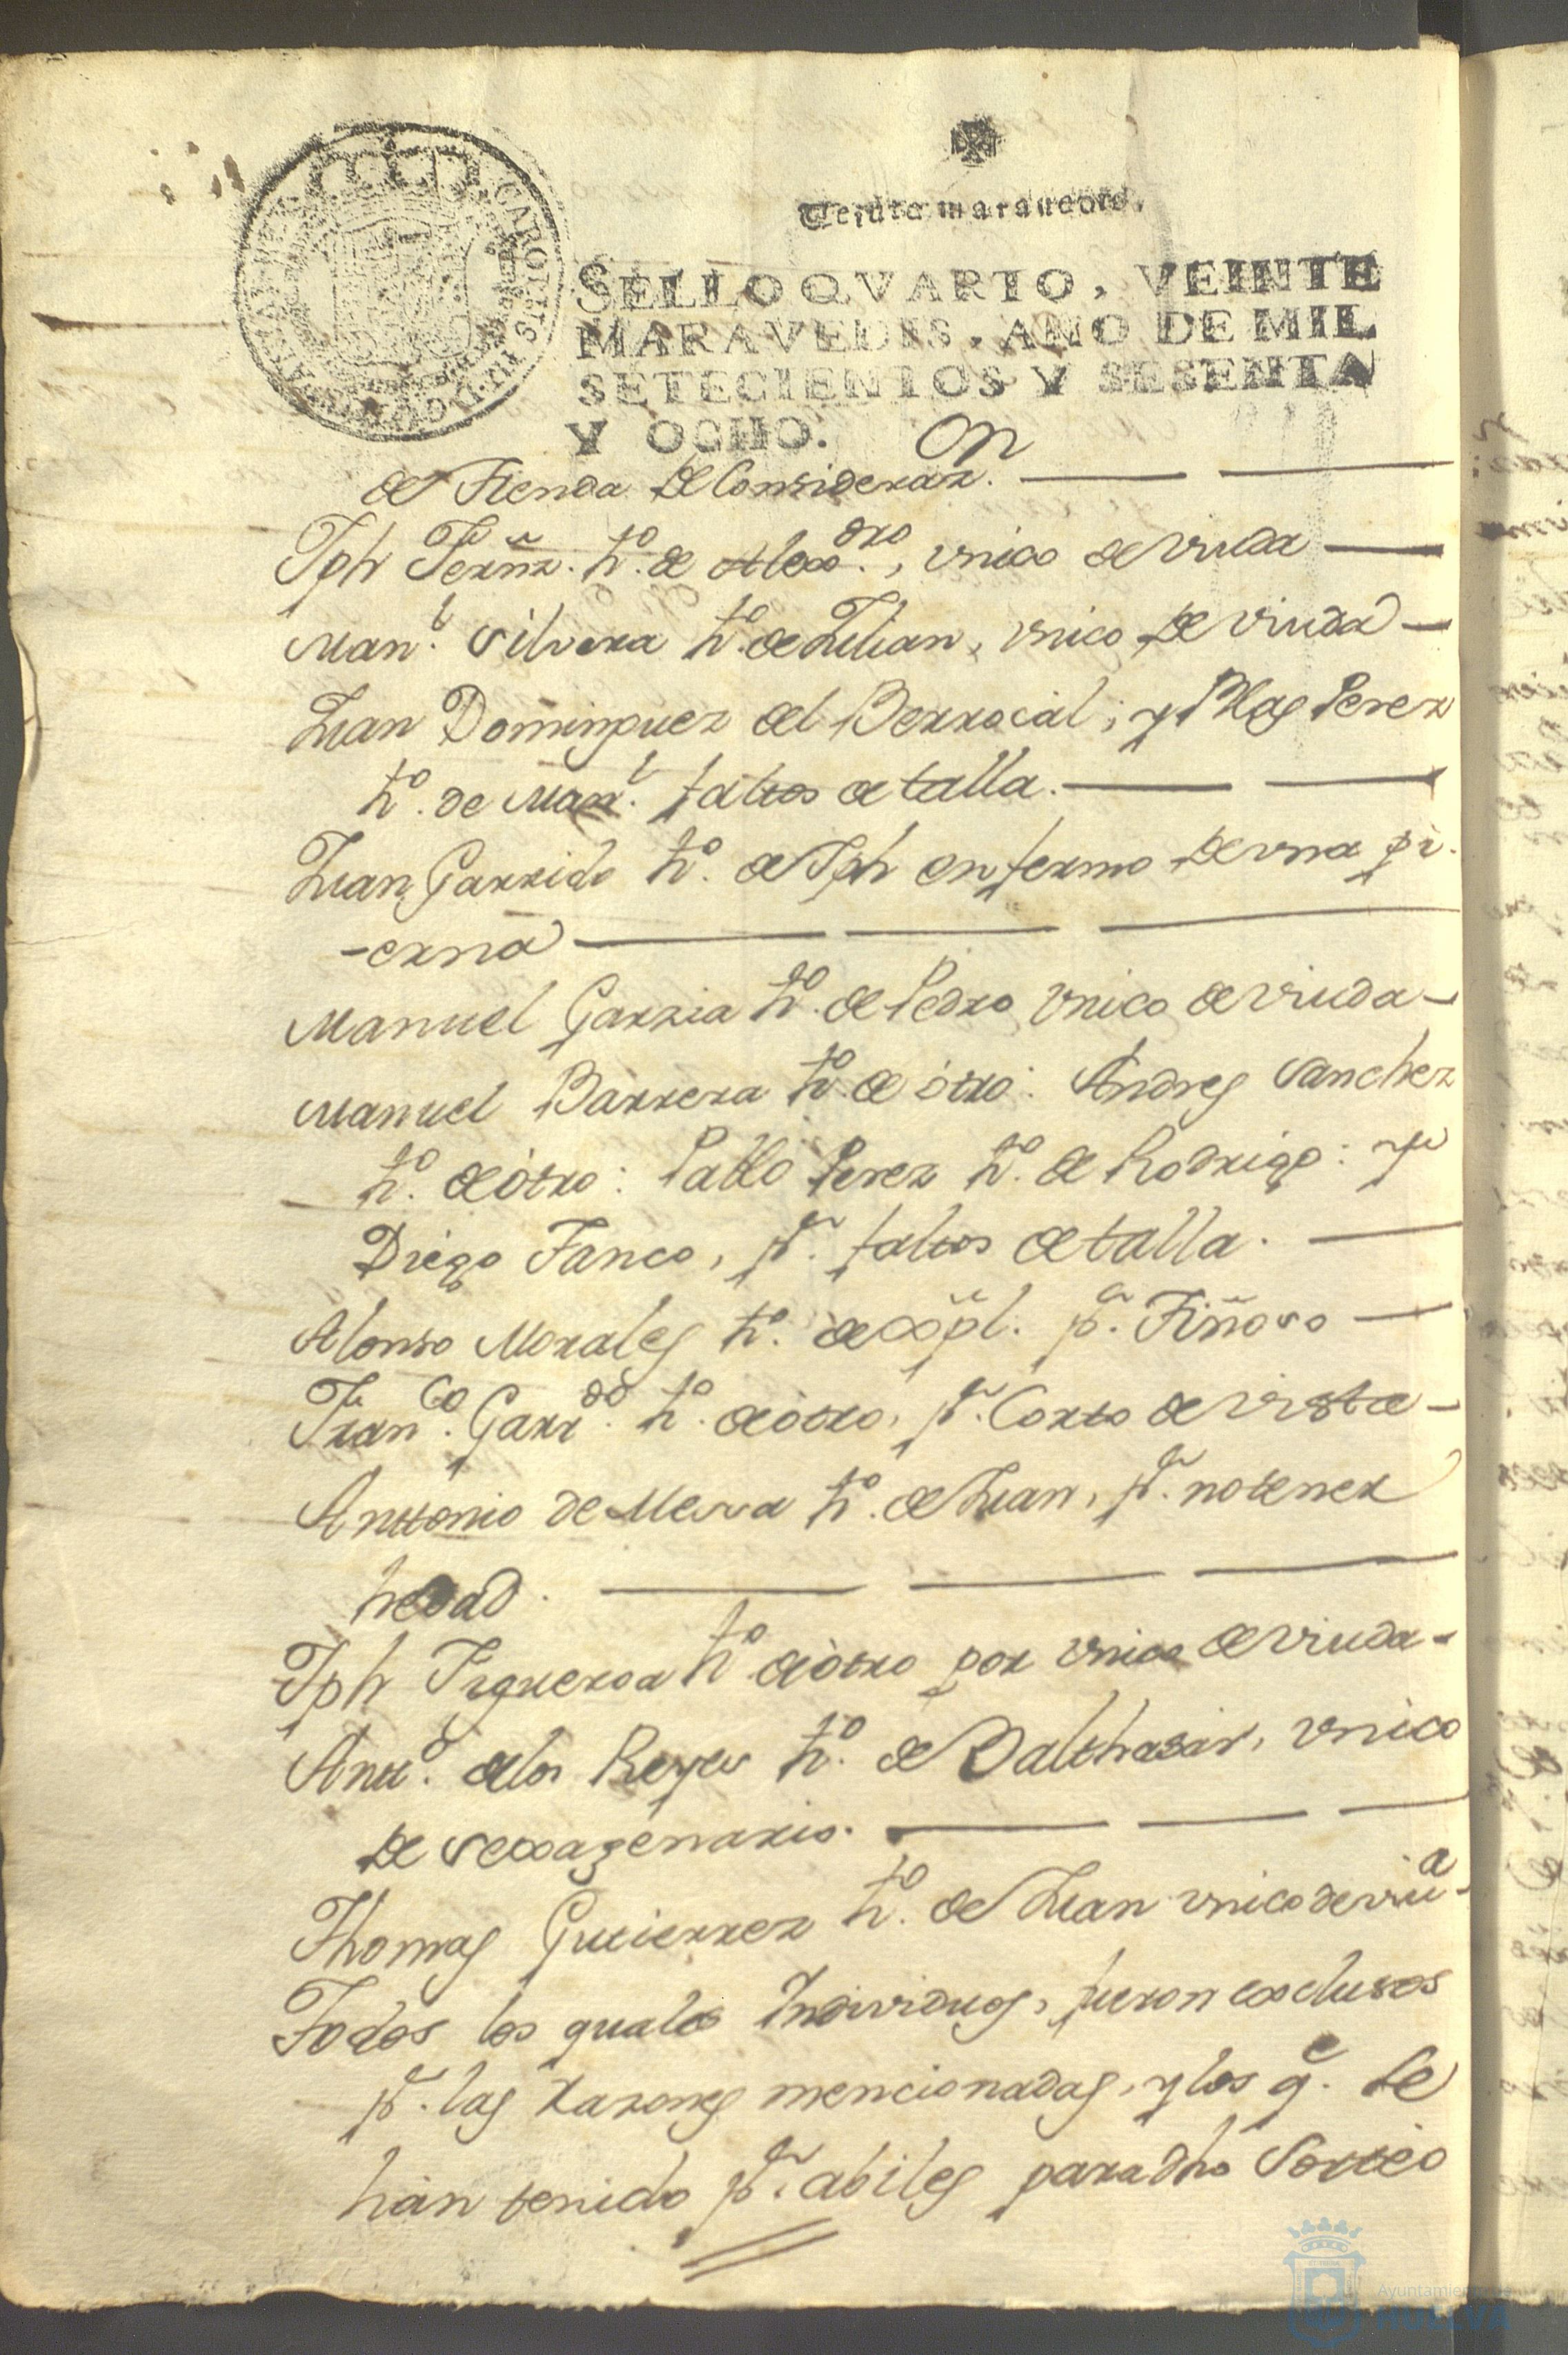 Veinte maravedis.
SELLO QVARTO, VEINTE
MARAVEDIS, AÑO DE MIL
SETECIENTOS Y SESENTA
Y OCHO.
CAROLUS III D G
de Tienda de Consideraz.on
Jph Fernz. ho. de Alexo.dro, vnico de viuda
Man.l Silvera ho. de Julian, vnico de viuda
Juan Dominguez del Berrocal, y Blas Perez
ho. de Man.l faltos de talla.
Juan Garrido ho. de Jph enfermo de vna pi-
-erna
Manuel Garzia ho. de Pedro vnico de viuda
Manuel Barrera ho. de otro: Andres Sanchez
ho. de otro: Pablo Perez ho. de Rodrigo: y
Diego Fanco, pr. faltos de talla.
Alonso Morales ho. de Xpl. pr. Tiñoso
Fran.co Garr.do ho. de otro, pr. Corto de vista
Anttonio de Messa ho. de Juan, pr. no tener
hedad.
Jph Figueroa ho. de otro por vnico de viuda
Antt.o de los Reyes ho. de Balthasar, vnico
de sexagenario.
Thomas Gutierrez ho. de Juan vnico de viu.a
Todos los quales Individuos, fueron exclusos
pr. las razones mencionadas, y los q.e se
han tenido pr. abiles para dho Sorteo
Ayuntamiento de
HUELVA